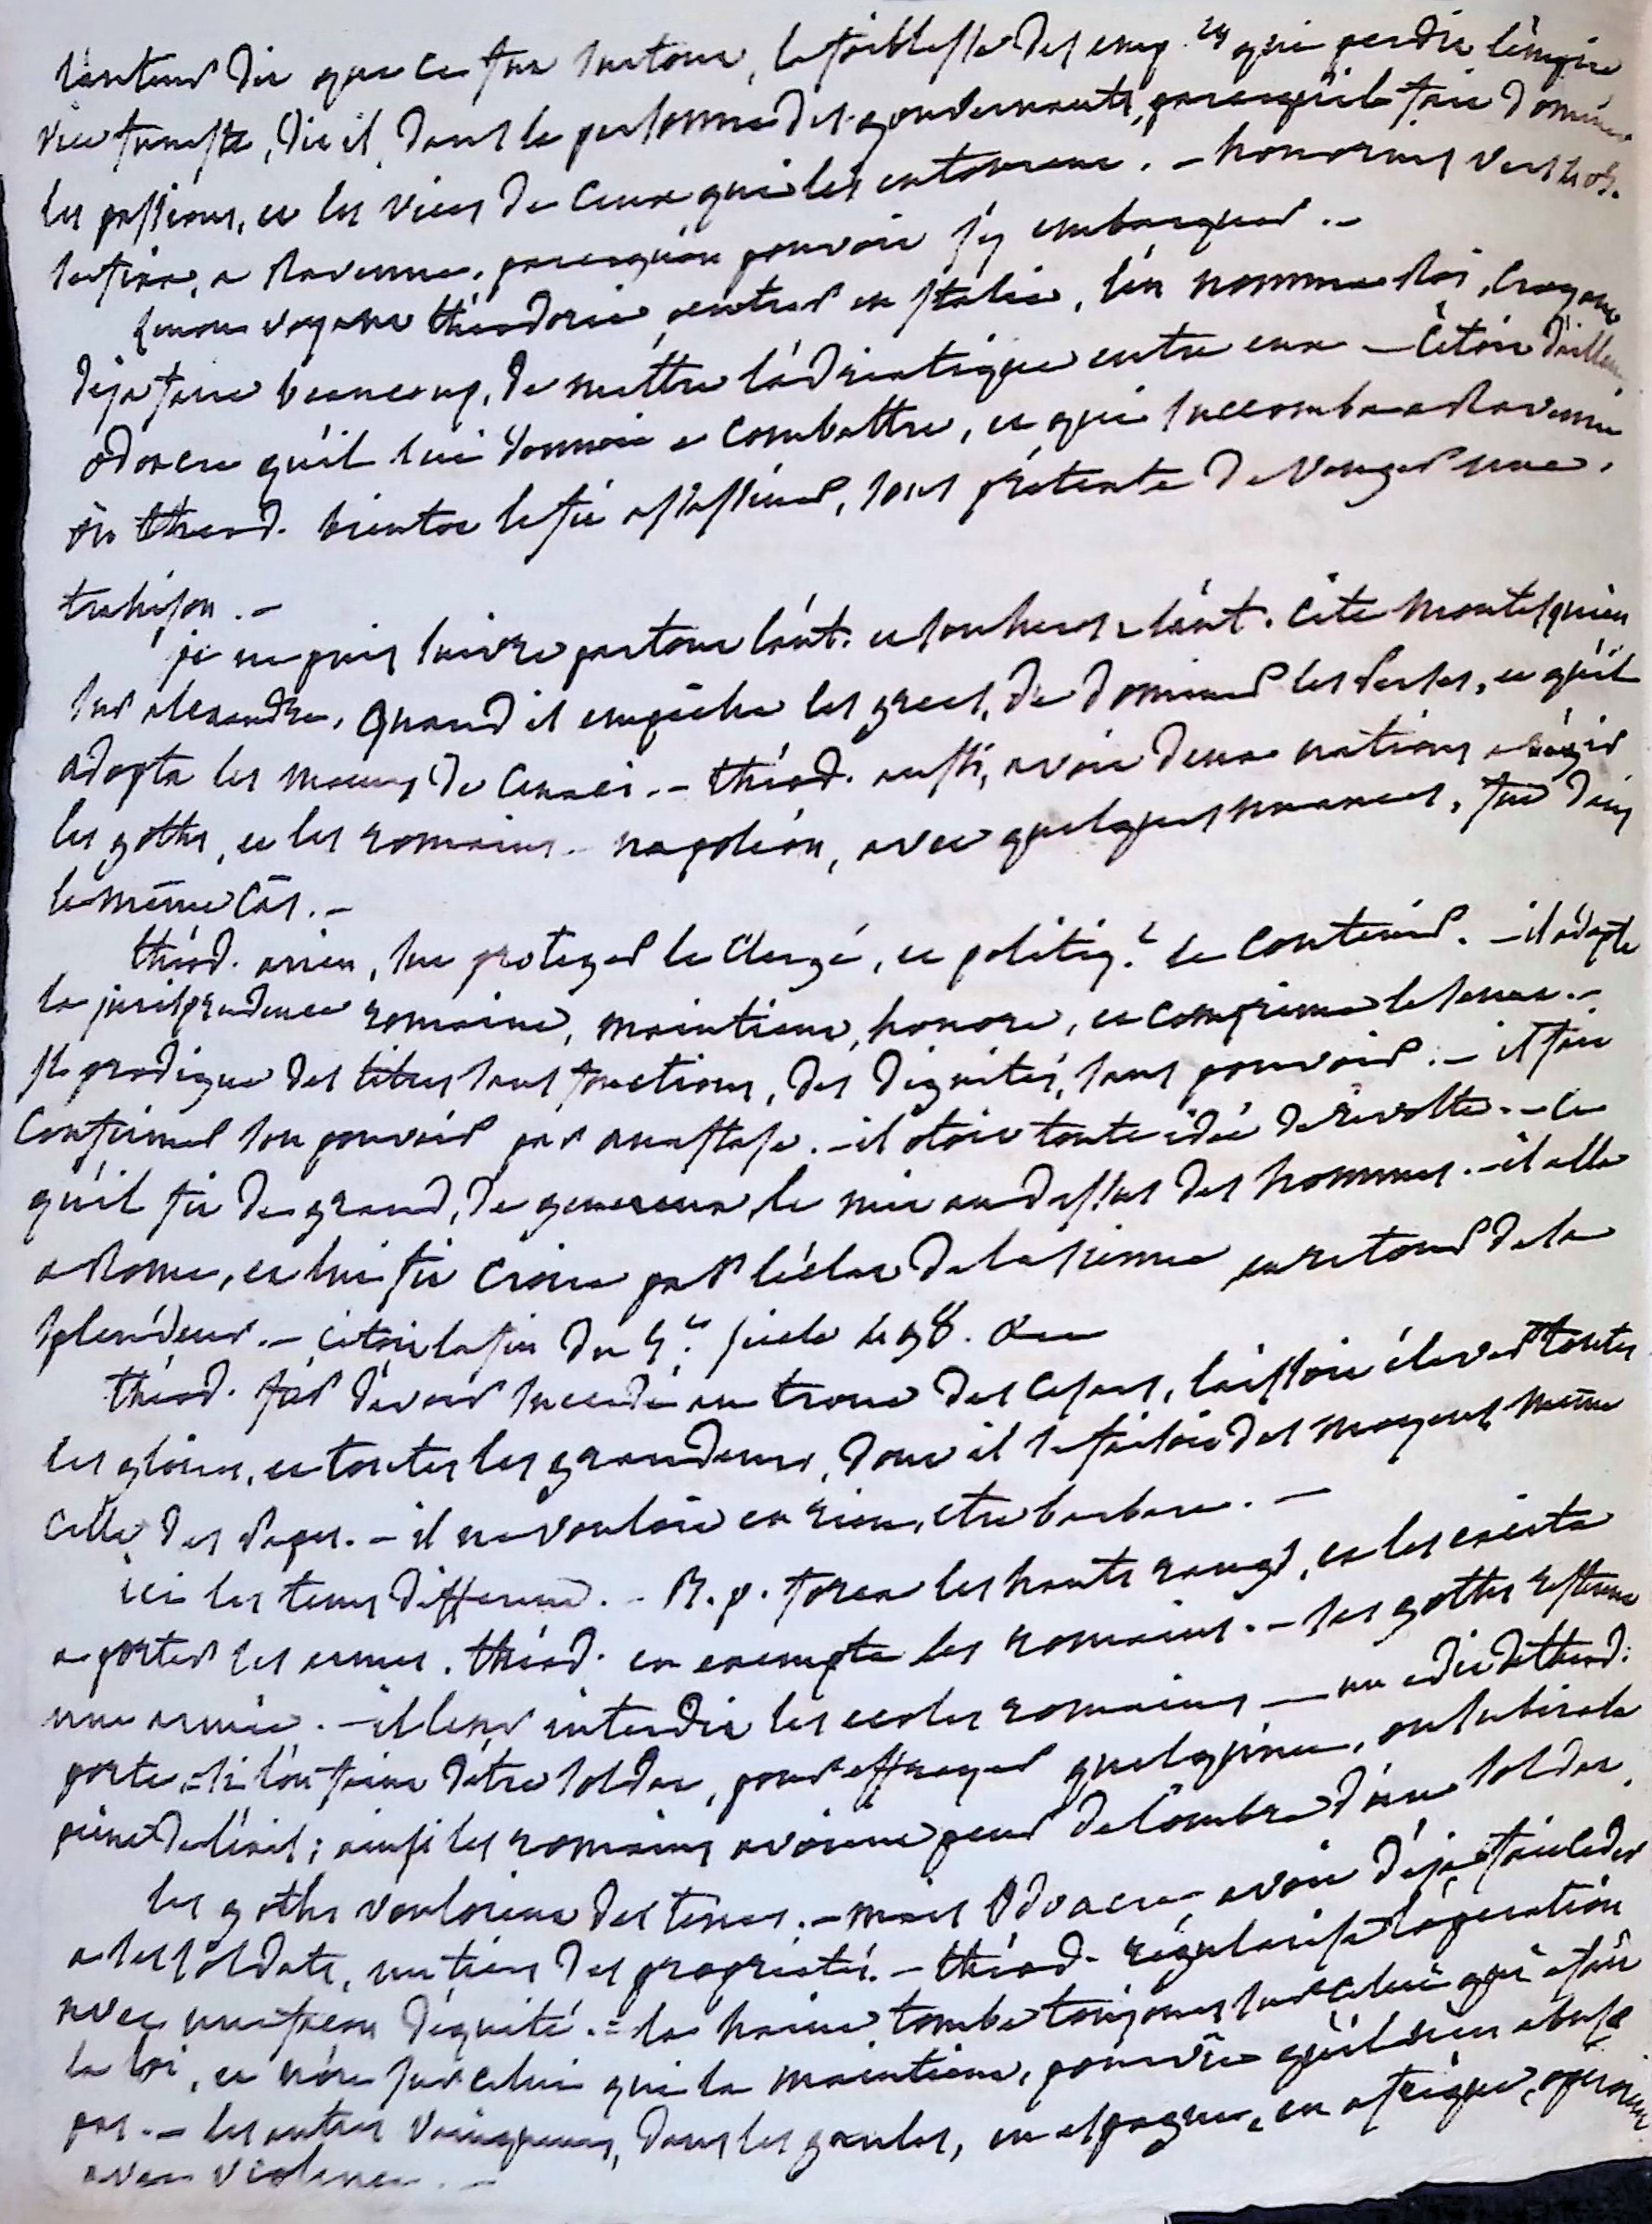 l'auteur dit que ce fut surtout, la foiblesse des emp.rs qui perdit l'empire
vice funeste, dit il, dans la personne des gouvernants, parcequ'il fait dominer
les passions, et les vices de ceux qui les entourent. - honorius vers 408.
se fixa, a Ravenne, parcequ'on pouvoit s'y embarquer. -
Zenon voyant théodoric, entrer en Italie, l'en nomma Roi, croyant
déja faire beaucoup, de mettre l'adriatique entre eux - c'étoit d'ailleurs
odoacre qu'il lui donnoit a combattre, et qui succomba a Ravenne
où théod. bientot le fit assassiner, sous prétexte de venger une
trahison. -
je ne puis suivre partout l'aut. et son heros - l'aut. cite Montesquieu
sur alexandre, quand il empêcha les grecs, de dominer les Perses, et qu'il
adopta les moeurs de ceux ci. - théod. aussi, avoit deux nations a régir
les goths, et les romains - napoléon, avec quelques nuances, fut dans
le même cas. -
théod. arien, sut proteger le clergé, et politiq.t le contenir. - il adopte
la jurisprudence romaine, maintient, honore, et comprime le senat. -
il prodigue des titres sans fonctions, des dignités, sans pouvoir. - il fait
confirmer son pouvoir par anastase. - il otoit toute idée de révolte. - ce
qu'il fit de grand, de genereux, le mit au dessus des hommes. - il alla
a Rome, et lui fit croire par l'éclat de la sienne au retour de la
splendeur. - c'étoit la fin du 5.e siecle 498.
théod. fier d'avoir succedé au trone des Cesars, laissoit élever toutes
les gloires, et toutes les grandeurs, dont il se faisoit des moyens, même
celle des Papes. - il ne vouloit en rien, etre barbare. -
ici les tems different. - B. p. força les hauts rangs, et les excita
a porter les armes. théod. en exempta les romains. - ses goths restèrent
une armée. - il leur interdit les ecoles romaines - un edit de théod.
porte, si l'on feint d'être soldat, pour effrayer quelqu'un, on subira la
peine de l'exil; ainsi les romains avoient peur de l'ombre d'un soldat.
les goths vouloient des terres. - mais Odoacre avoit déja, fait céder
a ses soldats, un tiers des propriétés. - théod. régularisa l'operation
avec une façon d'equité. = la haine tombe toujours sur celui qui a fait
la loi, et non sur celui qui la maintient, pourvu qu'il n'en abuse
pas. - les autres vainqueurs, dans les gaules, en espagne, en afrique, operoient
avec violence. -